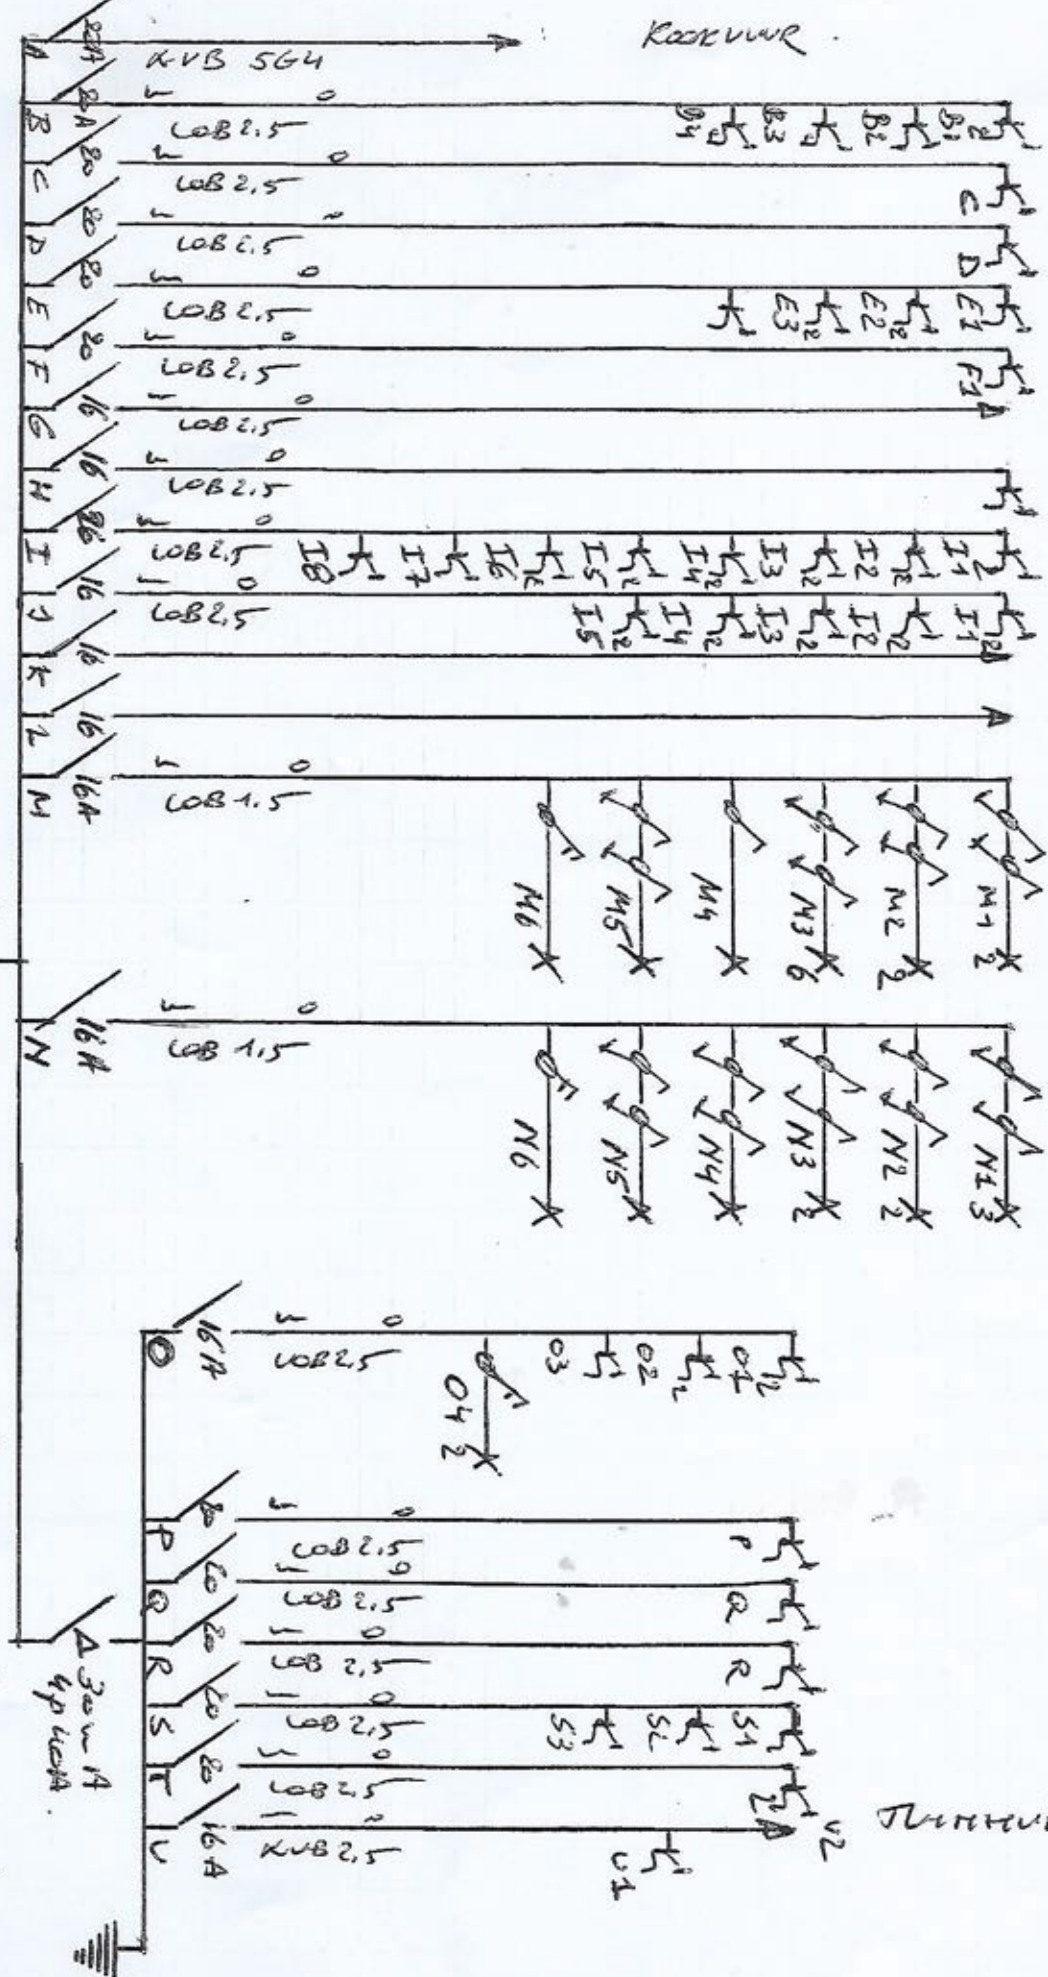 A 20A XVB 5G4 Kookvuur.
B 20A VOB 2.5 B4 B3 B2 B1 2
C 20 VOB 2.5 C
D 20 VOB 2.5 D
E 20 VOB 2.5 E3 2 E2 2 E1
F 20 VOB 2.5 F1
G 16 VOB 2.5
H 16 VOB 2.5
I VOB 2.5 I8 I7 I6 2 I5 2 I4 2 I3 2 I2 2 I1 2
J 16 VOB 2.5 I5 2 I4 2 I3 2 I2 2 I1 2
K 16
L 16
M 16A VOB 1.5 M6 M5 M4 M3 6 M2 2 M1 2
N 16A VOB 1.5 N6 N5 N4 N3 2 N2 2 N1 3
O 16A VOB 2.5 O4 2 O3 O2 2 O1 2
P 20 VOB 2.5 P
Q 20 VOB 2.5 Q
R 20 VOB 2.5 R
S 20 VOB 2.5 S3 S2 S1
T 20 VOB 2.5
U 16A XVB 2.5 U1 U2
Δ 30mA
4p 40A.